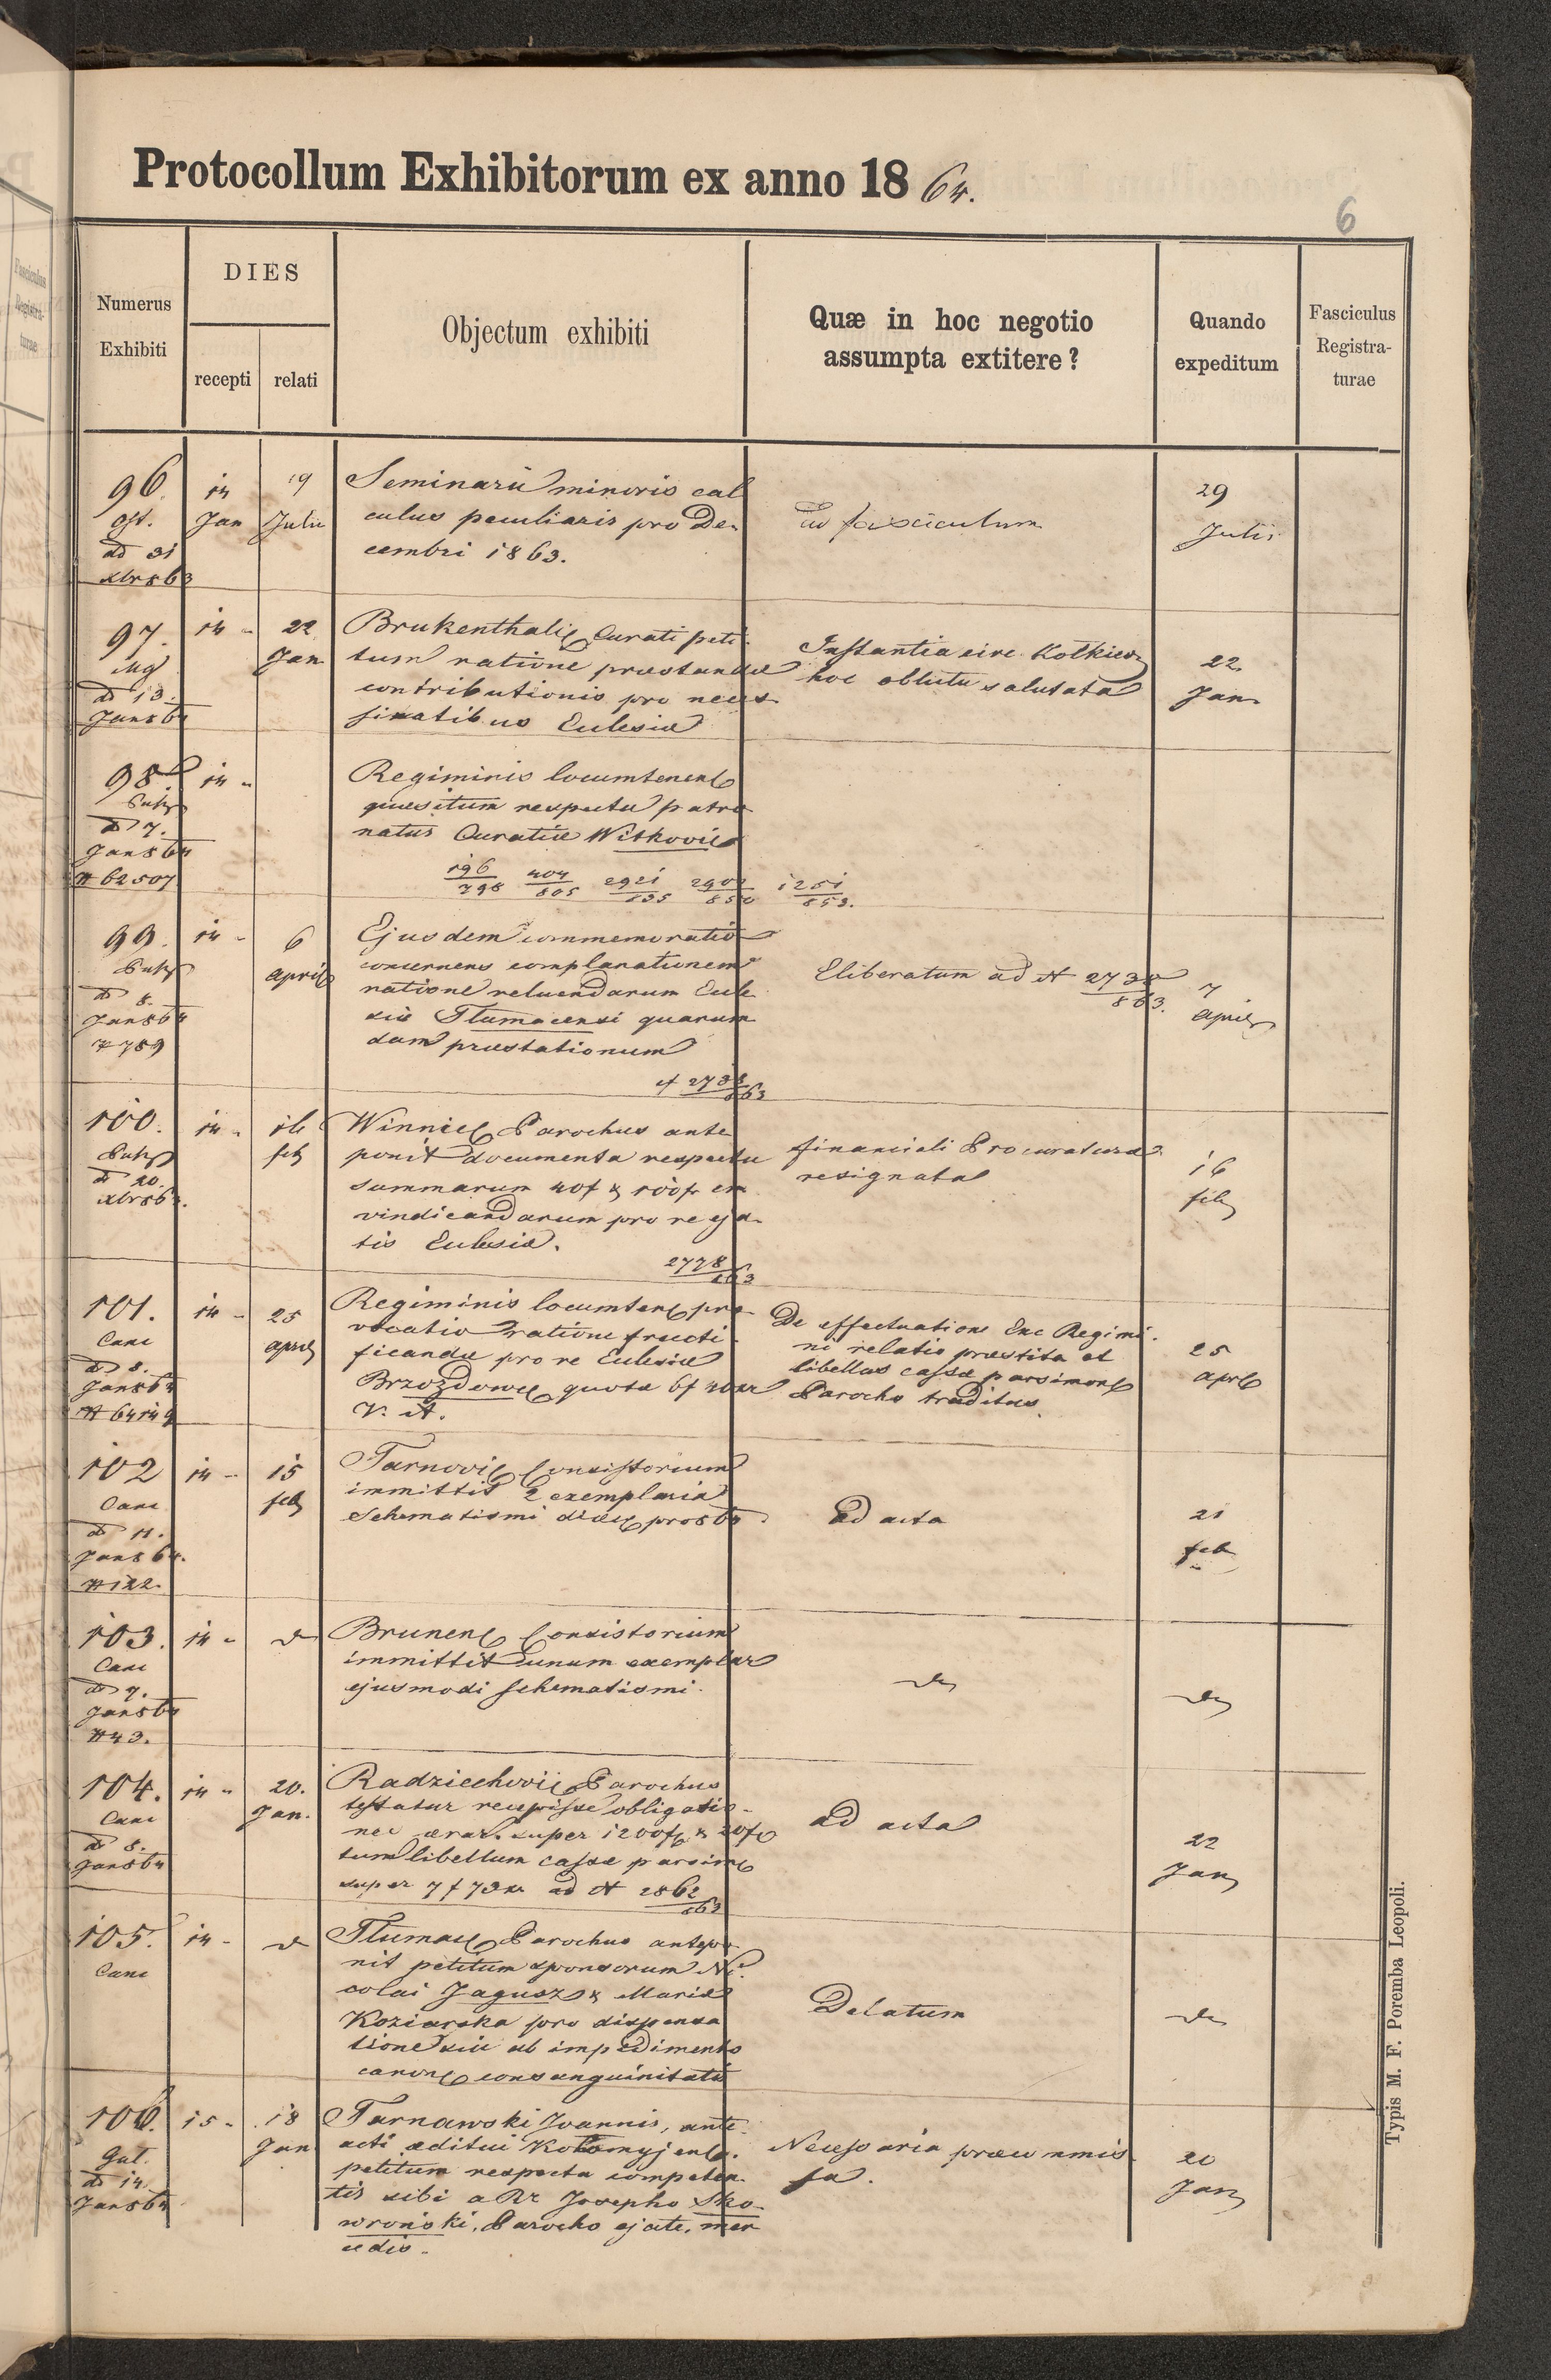 Protocollum Exhibitorum ex anno 1864.
6
Numerus Exhibiti
DIES
recepti
relati
Objectum exhibiti
Quæ in hoc negotio
assumpta extitere?
Quando
expeditum
Fasciculus
Registra-
turae
96.
ad 31
Xbr 863
14
Jan
19
Julii
Seminarii minoris cal
culus peculiaris pro De-
cembri 1863.
Ad fasciculum
29
Julii
97.
d 13.
Jan 864
14 -
22
Jan
Brukenthalic Curati peti-
tum ratione præstandæ
contributionis pro neces-
sitatibus Ecclesiæ
Instantia circ. Zolkiew
hoc obtutu salutata
22
Jan
98
d 7.
Jan 864
N 62507
14 -
Regiminis locumtenent
quæsitum respectu patro
natus Curatiæ Witkovic
196/798 404/805 2921/835 2902/850 1251/853.
99.
d 8.
Jan 864
N 789
14 -
6
April
Ejusdem commemoratio
concernens complanationem
ratione reluendarum Eccle
siæ Tlumacensi quarum
dam præstationum
N 2738/863
Eliberatum ad N 2738/863.
7
April
100.
d 20.
Xbr 863.
14 -
16
feb
Winnic Parochus ante
ponit documenta respectu
summarum 40f & 100f
vindicandarum pro re eja-
tis Ecclesiæ.
2778/863
financiali Procuraturæ
resignata
16
feb
101.
Canc
d 8.
Jan 864
N 64149
14 -
25
april
Regiminis locumten pro-
vocatio ratione fructi-
ficandæ pro re Ecclesiæ
Brzozdowc quota 6f 40xr
V. A.
De effectuatione Exc Regimi-
ni relatio præstita et
libellus cassæ parsimon
Parocho traditus.
25
april
102
Canc
d 11.
Jan 864.
N 122.
14 -
15
feb
Tarnovic Consistorium
immittit 2 exemplaria
Schematismi diœc pro 864
Ad acta
21
feb
103.
Canc
d 7.
Jan 864
N 43.
14 -
d
Brunen Consistorium
immittit unum exemplar
ejusmodi schematismi.
d
d
104.
Canc
d 8.
Jan 864
14 -
20.
Jan.
Radziechovic Parochus
testatur recepisse obligatio-
nes ærar. super 1200f & 20f
tum libellum cassæ parsim
super 7f 73xr ad N 2862/863
ad acta
22
Jan
105.
Canc
14 -
d
Tlumac Parochus antepo-
nit petitum sponsorum Ni-
colai Jagusz & Mariæ
Koziarska pro dispensa
tione sui ab impedimento
canon consanguinitatis
Delatum
d
106.
d 14.
Jan 864
15 -
18
Jan
Tarnawski Joannis, ante-
acti æditui Kolomyjens.
petitum respectu competen-
tis sibi a Rr Josepho Sko-
wroński, Parocho ejate, mer
cedis.
Necessaria præviæ
20
Jan
Typis M. F. Poremba Leopoli.